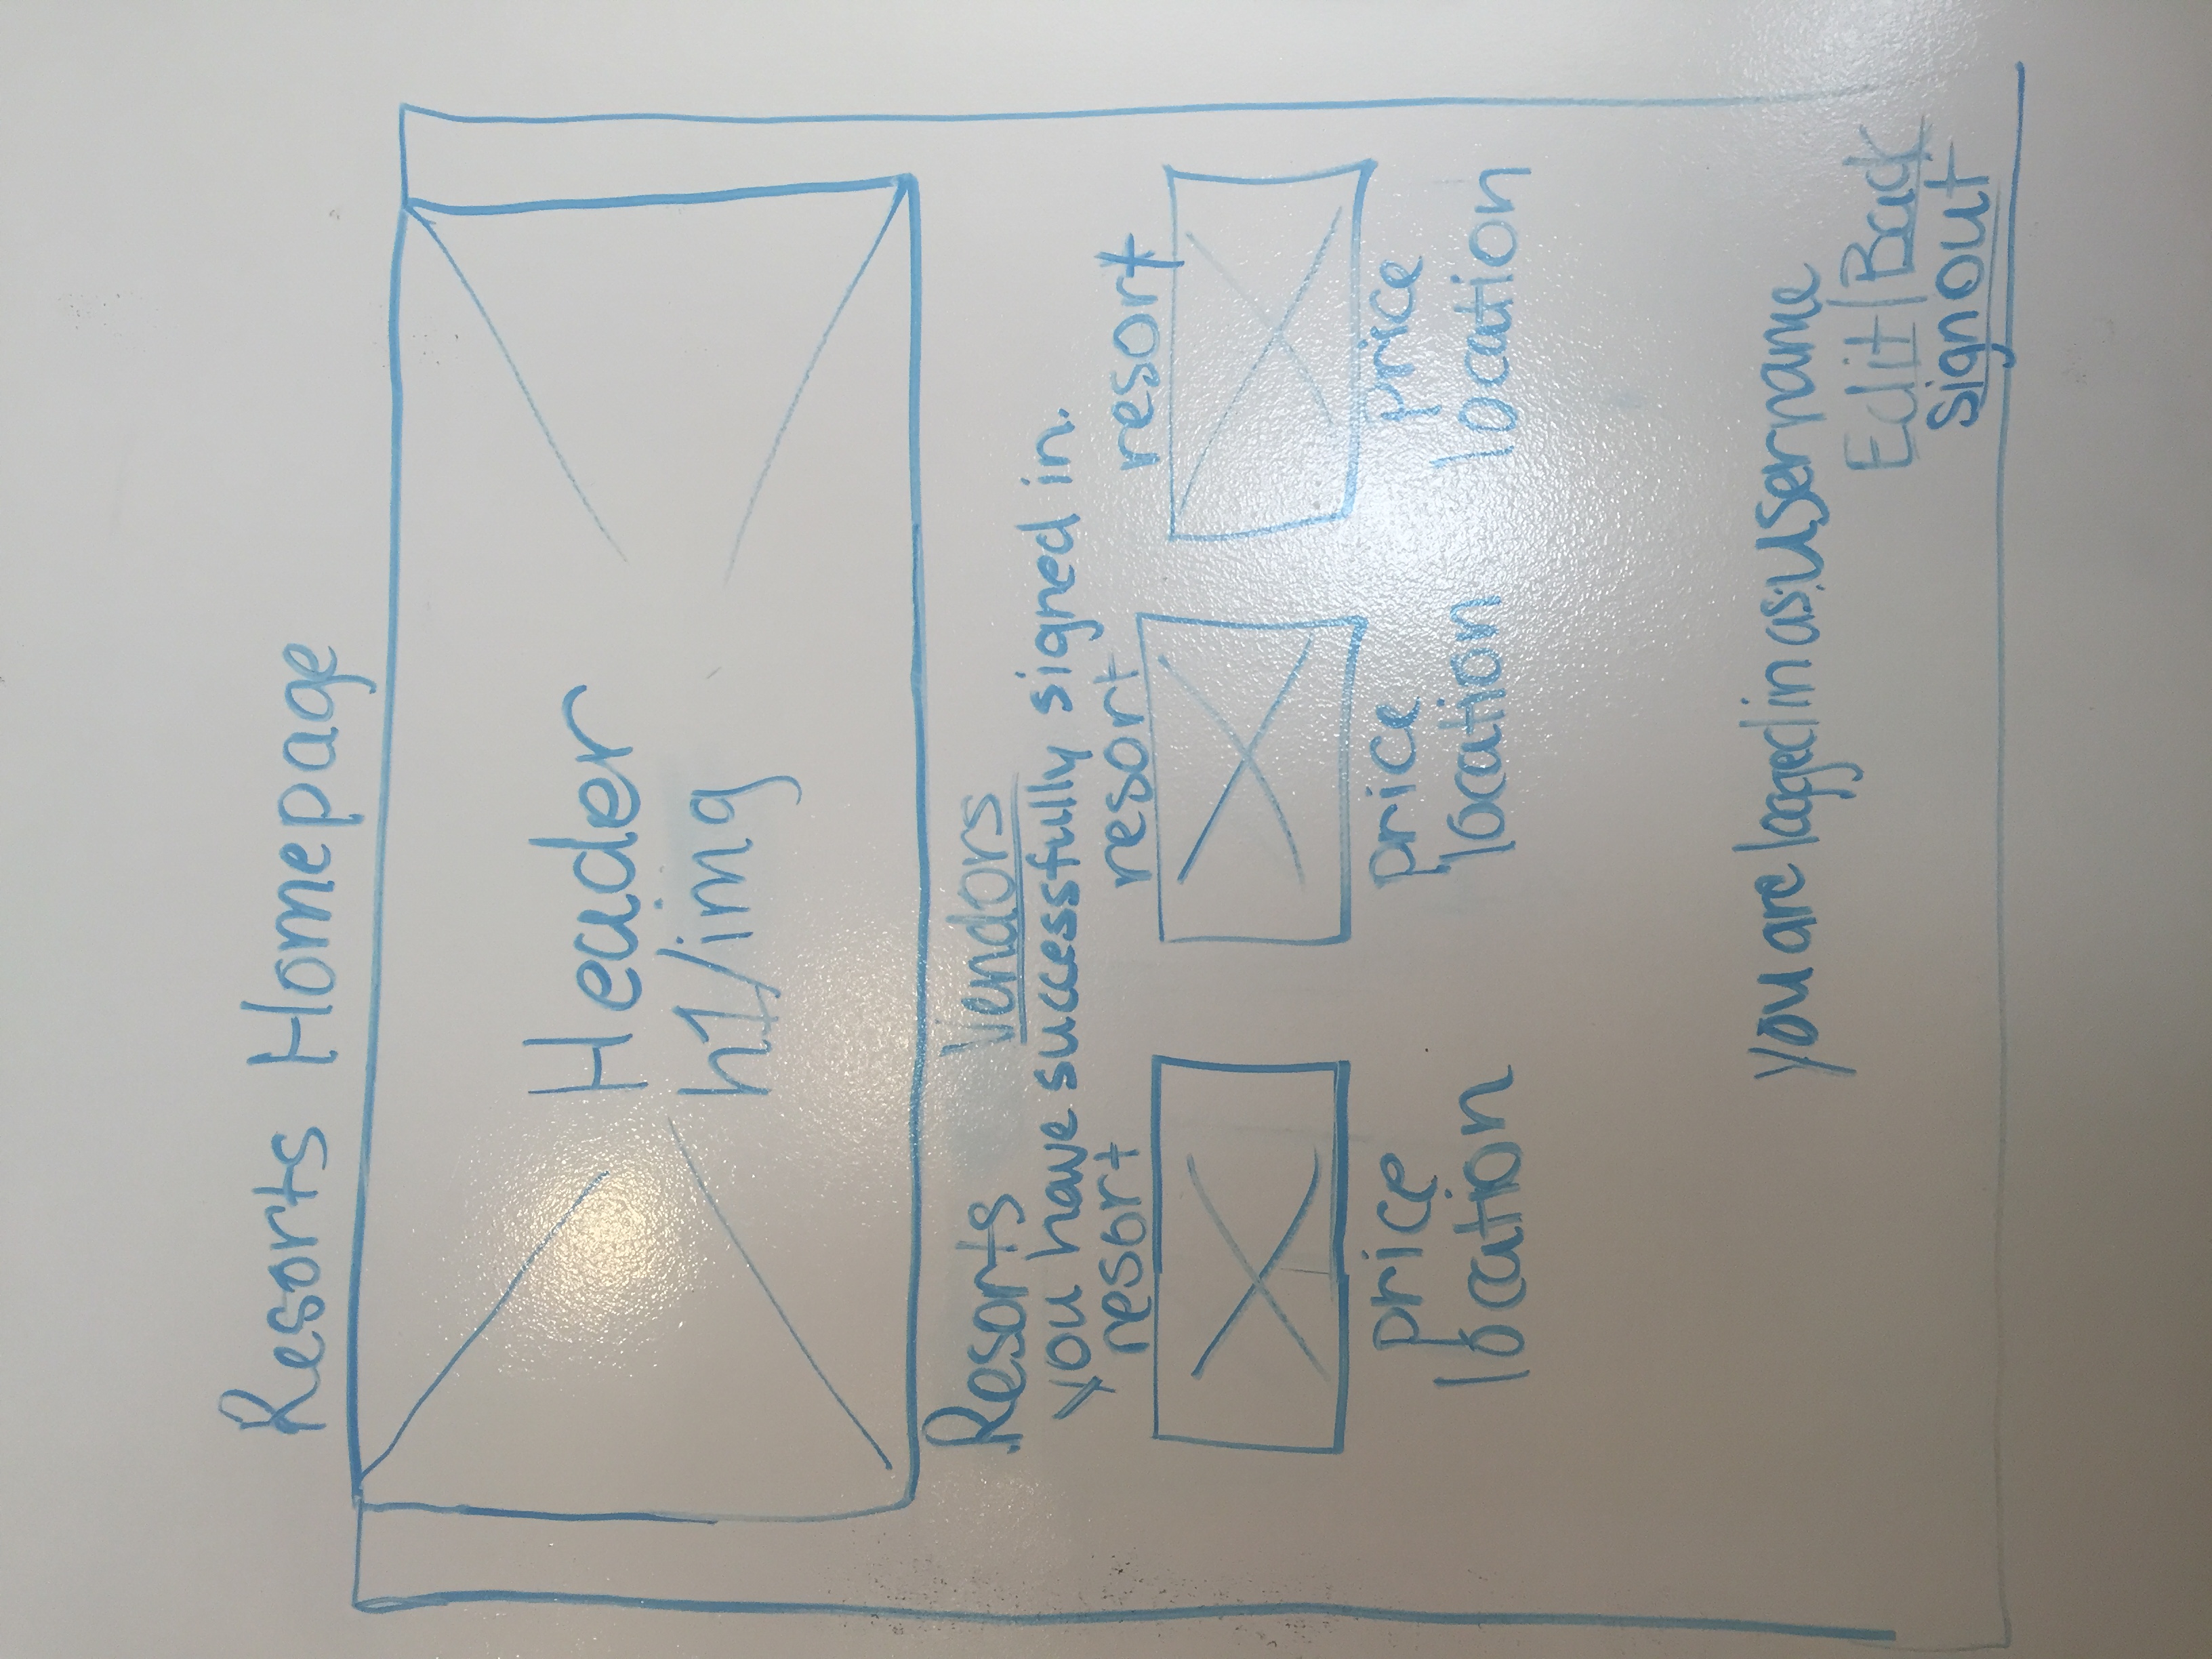 Resorts Homepage
Header
h1/img
Resorts Vendors
you have successfully signed in.
resort resort resort
price price price
location location location
you are logged in as: username
Edit/Back
sign out